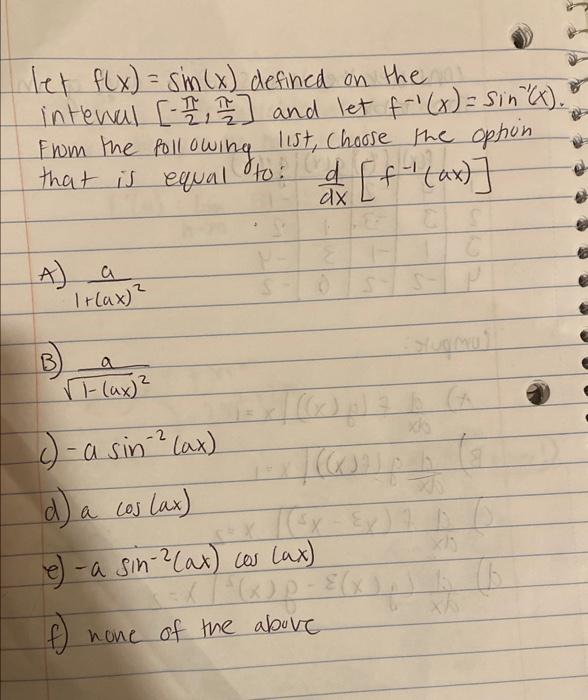 let f(x) = sin(x) defined on the
interval [-π/2, π/2] and let f⁻¹(x) = sin⁻¹(x).
From the following list, choose the option
that is equal to: d/dx [f⁻¹(ax)]
A) a/1+(ax)²
B) a/√1-(ax)²
c) -a sin⁻²(ax)
d) a cos(ax)
e) -a sin⁻²(ax) cos(ax)
f) none of the above